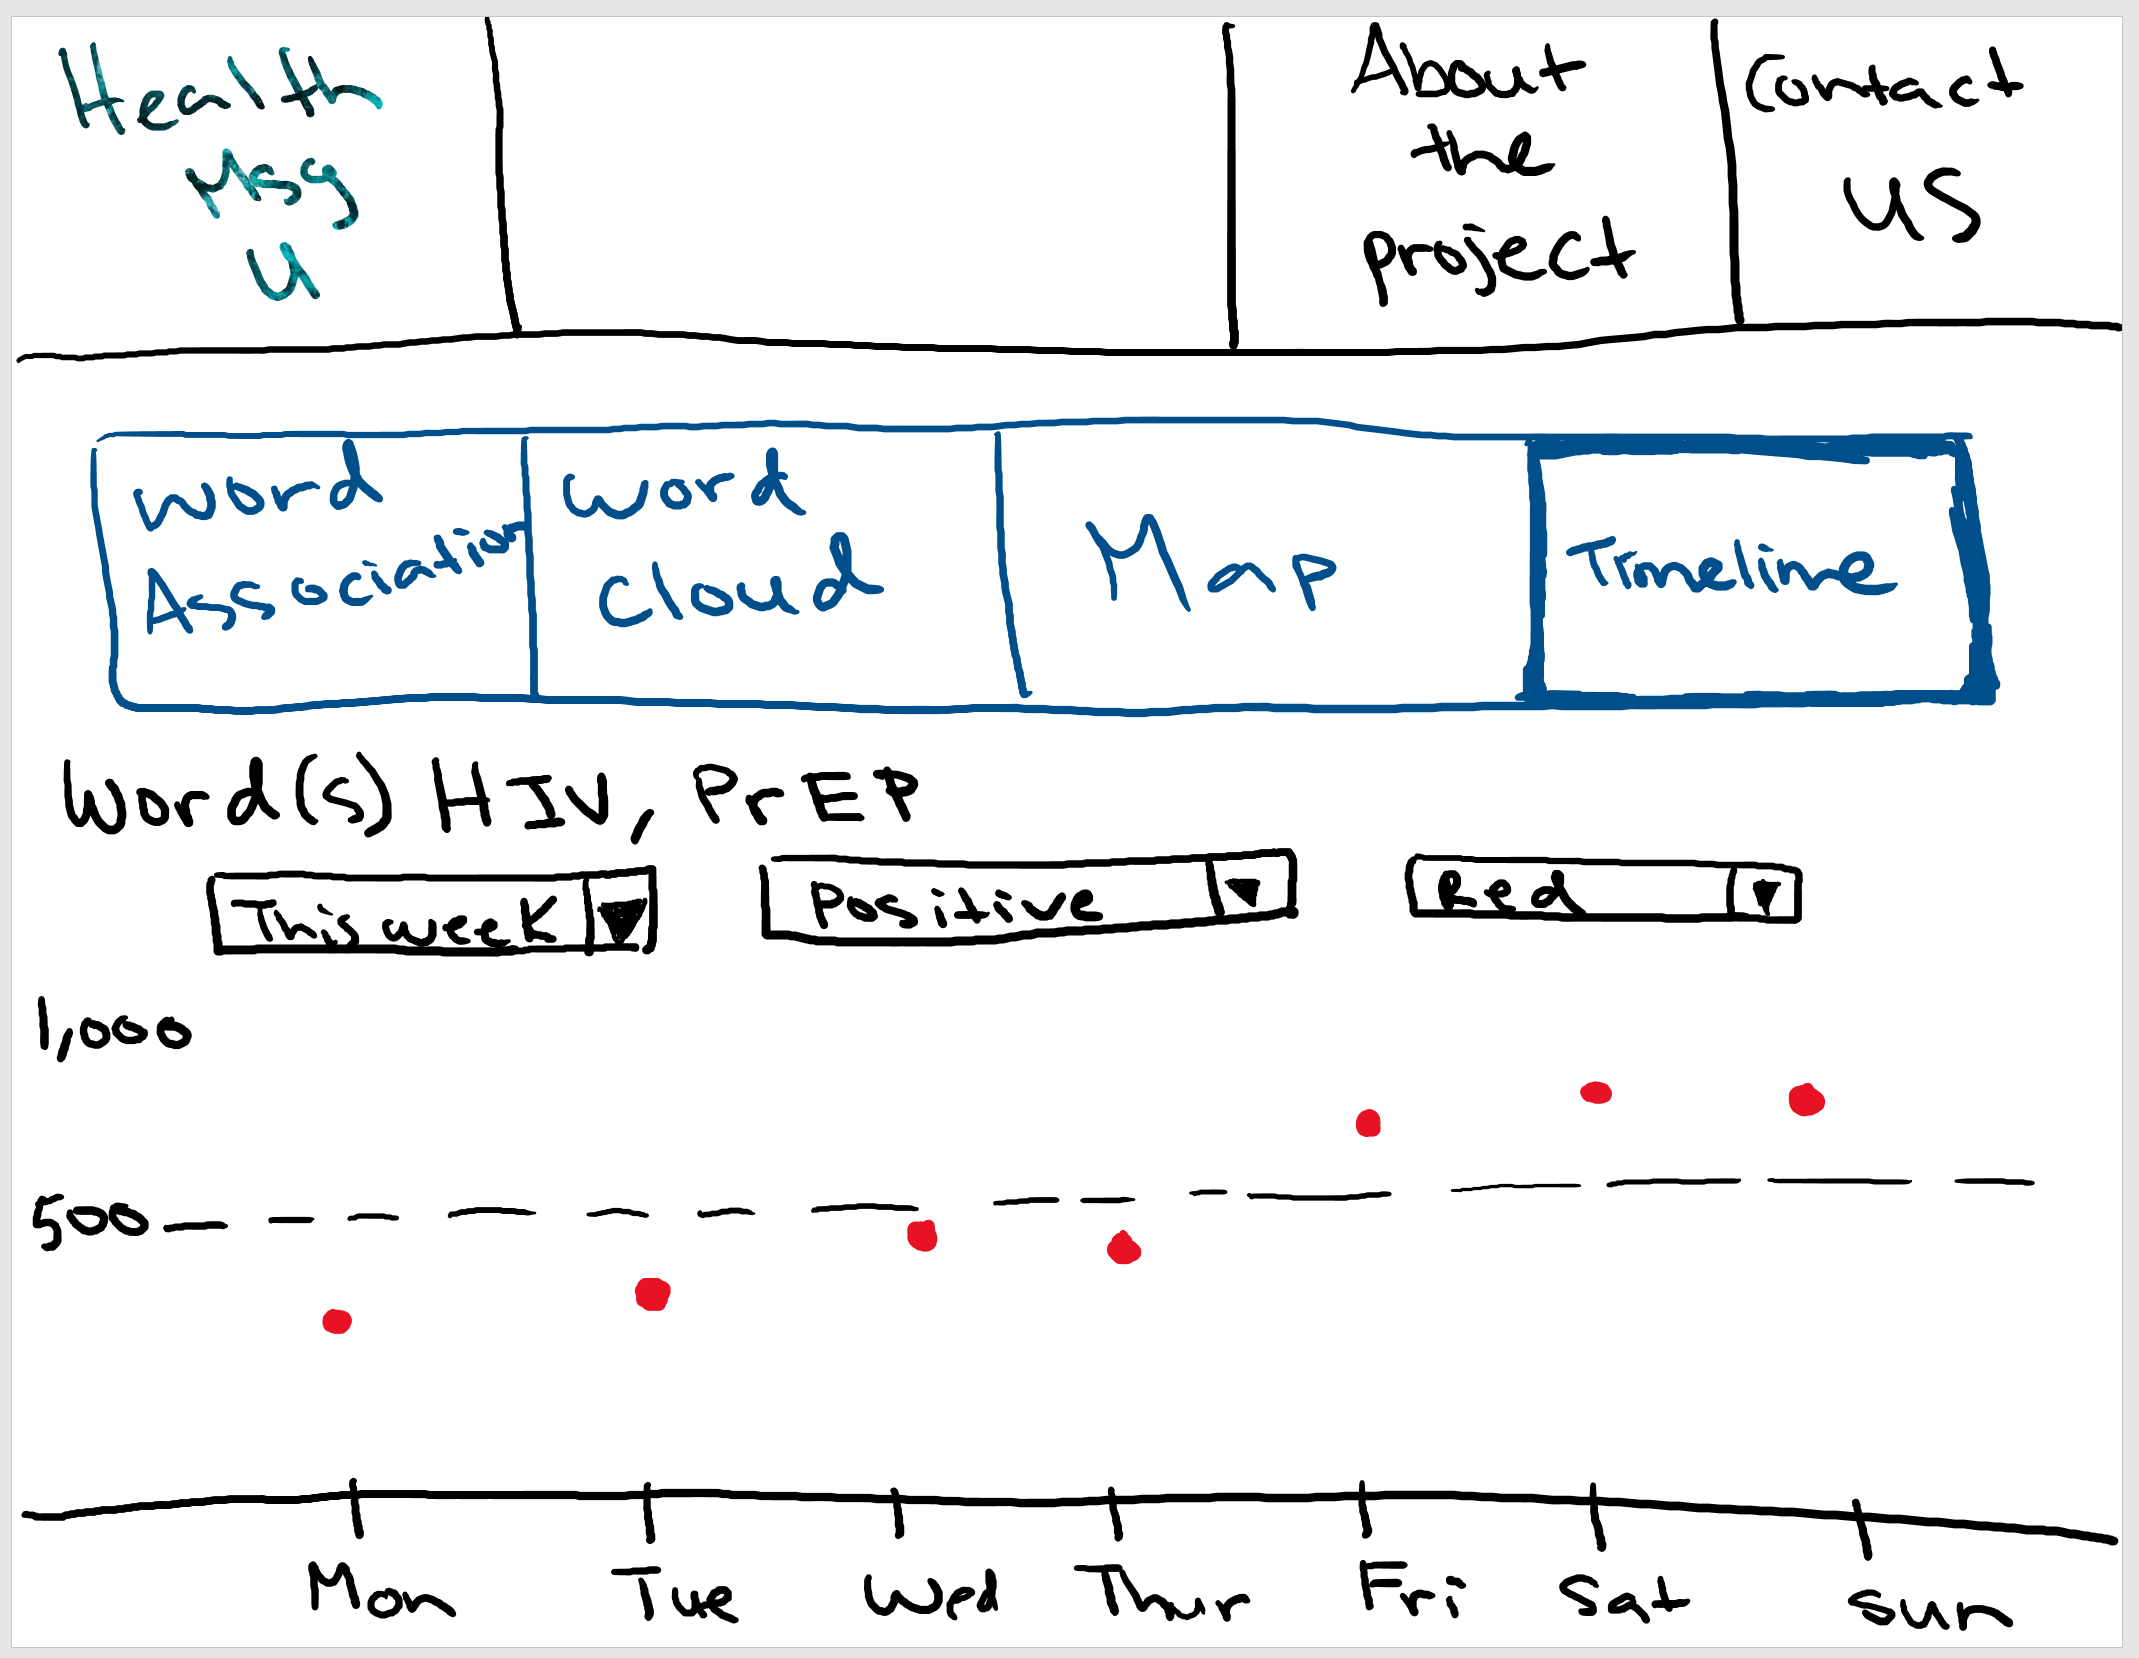 Health
Msg
U
About
the
project
Contact
us
Word
Association
Word
Cloud
Map
Timeline
Word(s) HIV, PrEP
This week
Positive
Red
1,000
500
Mon
Tue
Wed
Thur
Fri
Sat
Sun